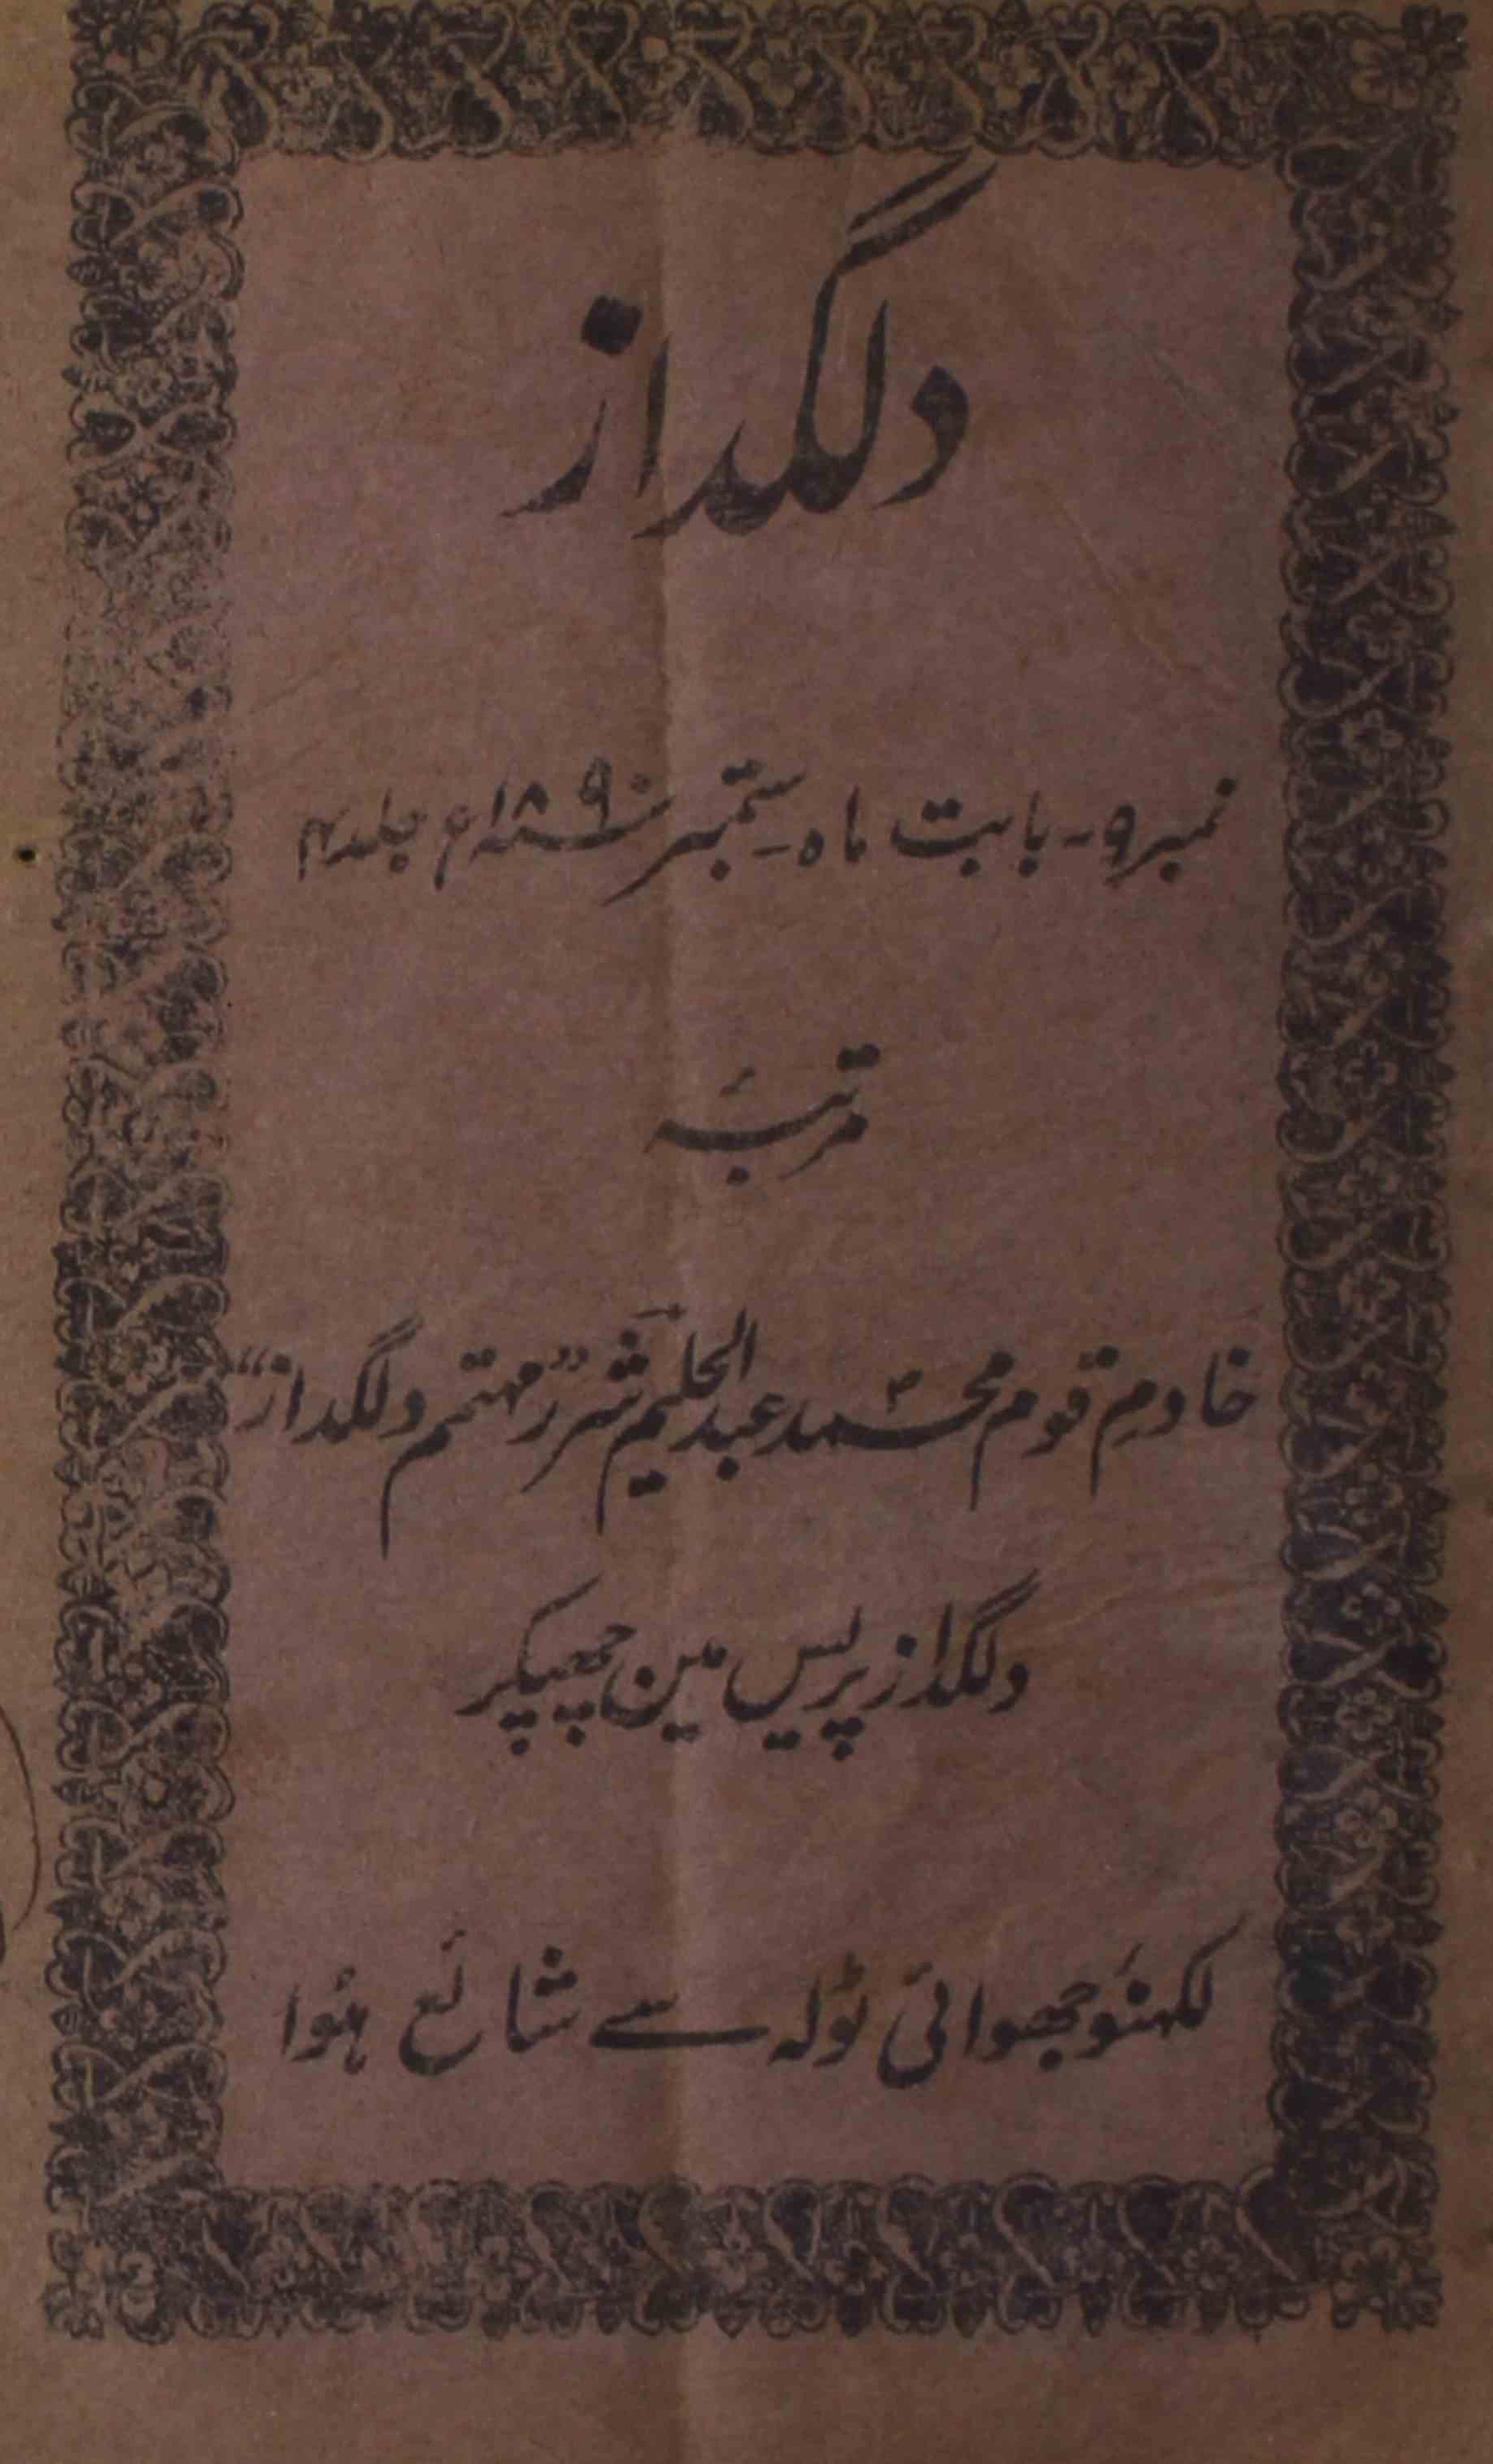 دلگداز
نمبر ۹ - بابت ماہ ستمبر ۱۸۹۰ء جلد ۴
مرتبۂ
خادم قوم محمد عبد الحلیم شرر "مہتمم دلگداز"
دلگداز پریس مین چھپکر
لکھنؤ جھوائی ٹولہ سے شائع ہؤا